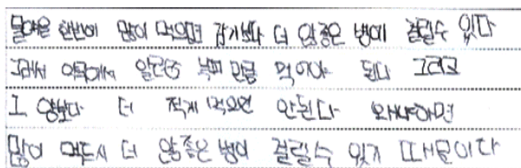 물약을 한번에 많이 먹으면 감기보다 더 안좋은 병에 걸릴수 있다
그래서 약국에서 알려준 만큼 먹어야 된다 그리고
그 양보다 더 적게 먹으면 안된다 왜냐하면
많이 먹든지 더 안좋은 병이 걸릴수 있기 때문이다